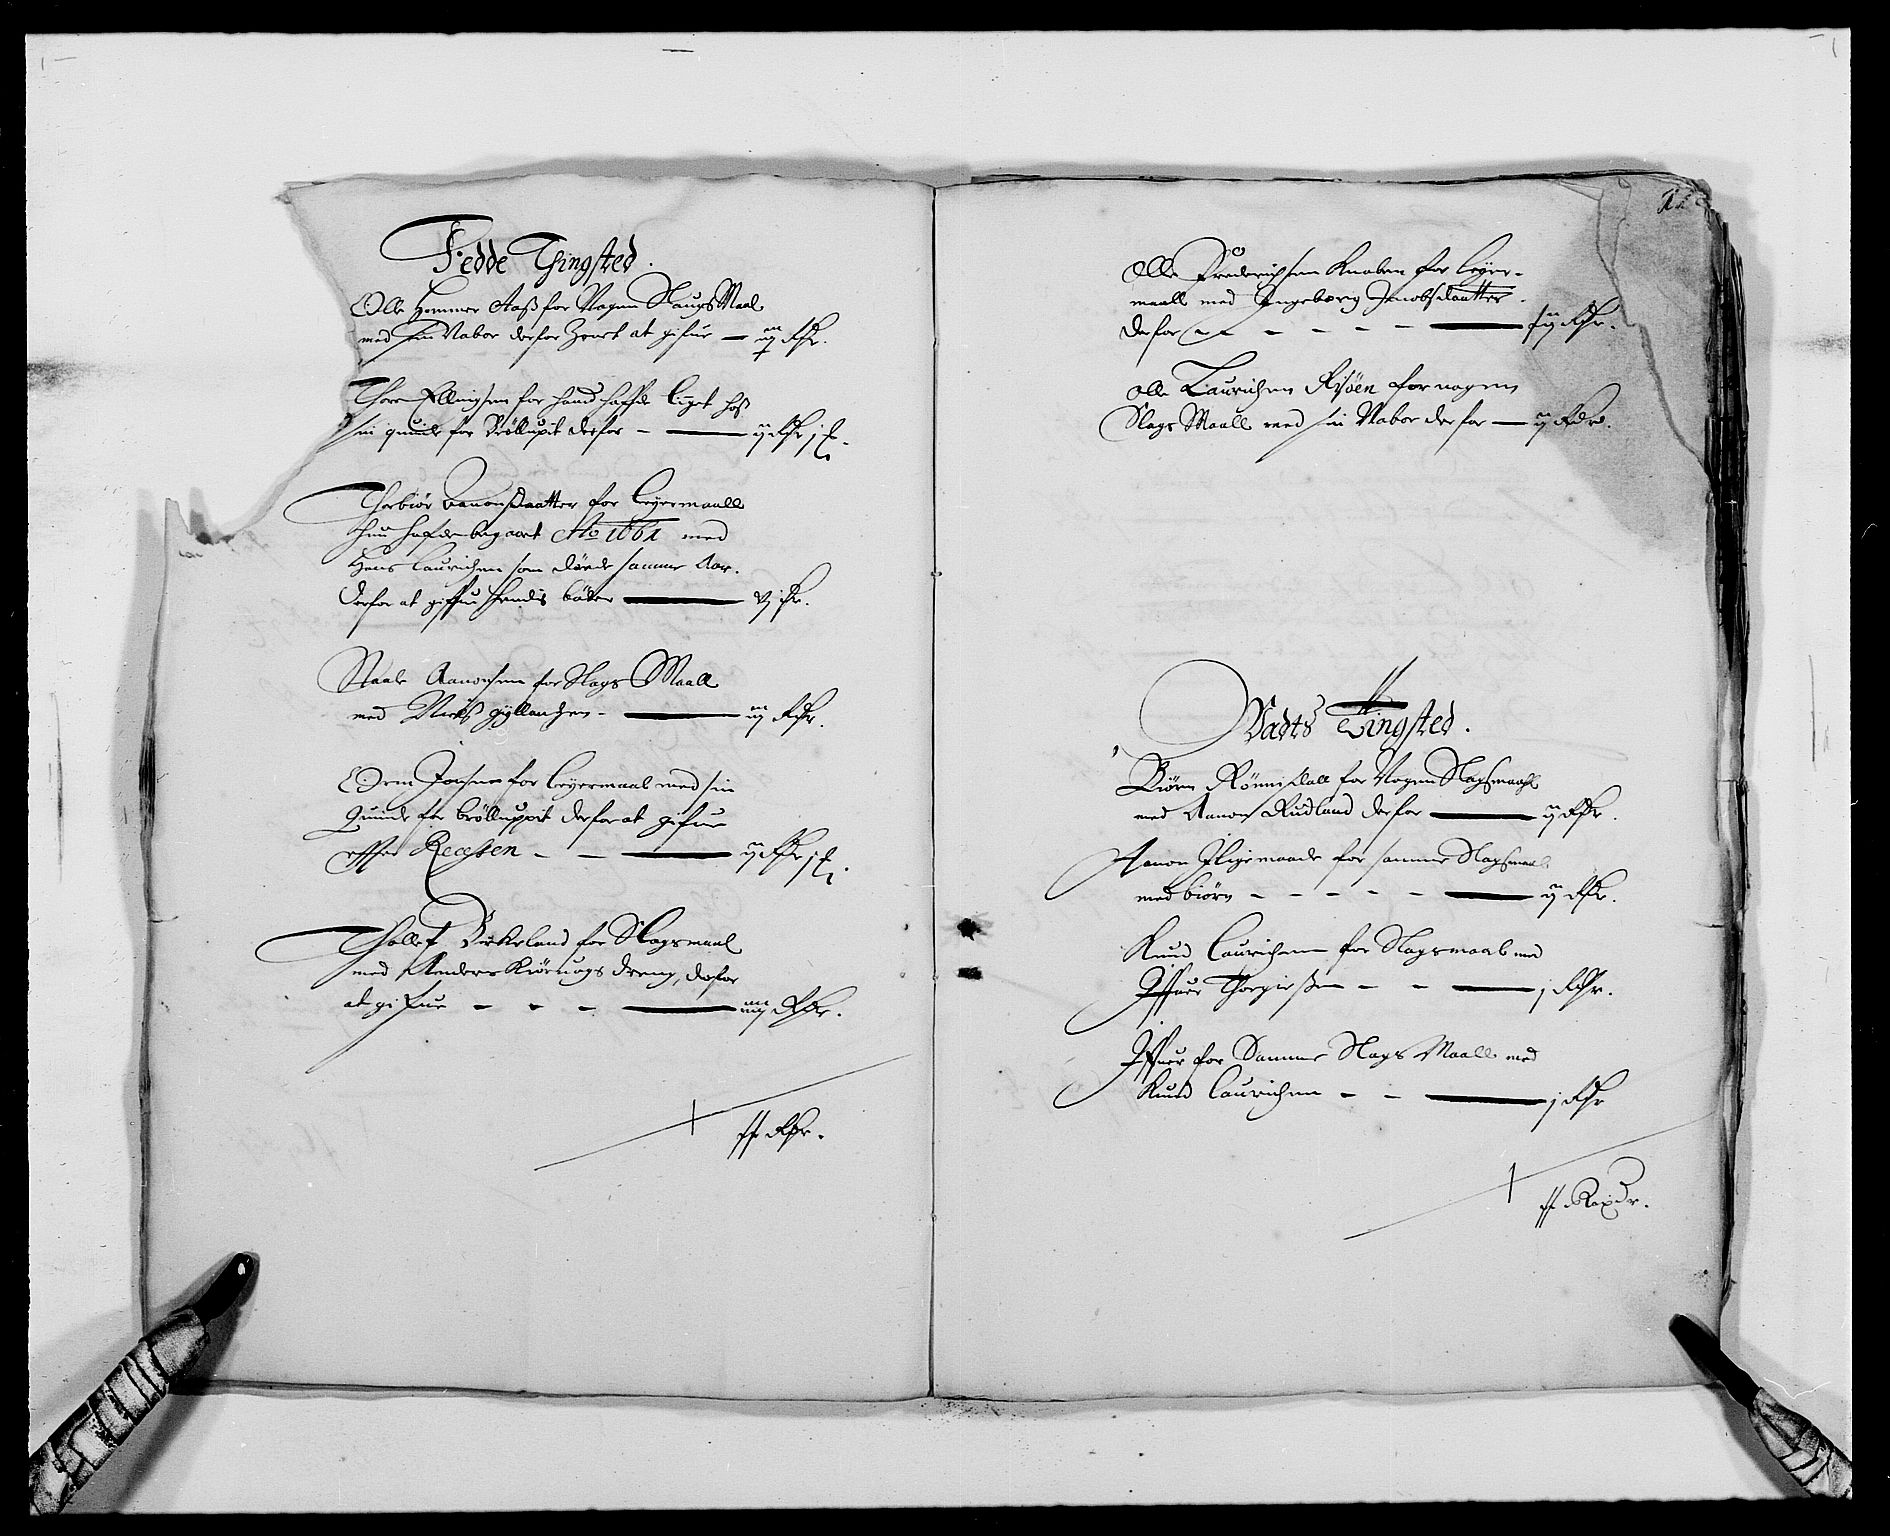 Fedde Thingsted.
Olle Hommer Aaß for Nogen Slaugs Maal
med sin Nabor derfor at gifue — ij Rdr.
Thore Ellingsen for hand hafde liget hoß
sin quinde for Bröllupit derfor — — ij Rdr j
Thorbiør Aanonsdaatter for Leyermaall
hun hafde begaaet Ao 1661 med
Hans Lauridsen som døde samme Aar.
derfor at giffue hendis bøder — vj Rdr.
Staale Aanonsen for Slags Maall
med Niels Gyllandsen - — ij Rdr.
Joensen for Leyermaal med sin
Quinde før brölluppit derfor at gifue
effter Recessen - - — ij Rdr j
Thollef Birkeland for Slagsmaal
med Anders dreng, derfor
at gifue - - - — iiij Rdr.
Rdr.
Olle Frederichsen Knaben for Leyer-
maall med Ingeborg Jacobsdaatter
derfor - - - - — Rdr.
Olle Lauridsen Risøen for nogen
Slags Maall med sin Nabor derfor — ij Rdr.
Vadts Tingsted.
Biørn Rønnisdall for Nogen Slagsmaahl
med Aanon Rudland derfor — ij Rdr.
Aanon for samme Slagsmaal
med biørn - - - - - — ij Rdr.
Knud Lauridsen for Slagsmaal med
Iffuer Thorgiersen - - — j Rdr.
Iffuer for Samme Slags Maall med
Knud Lauridsen - - — j Rdr
Rixdr.